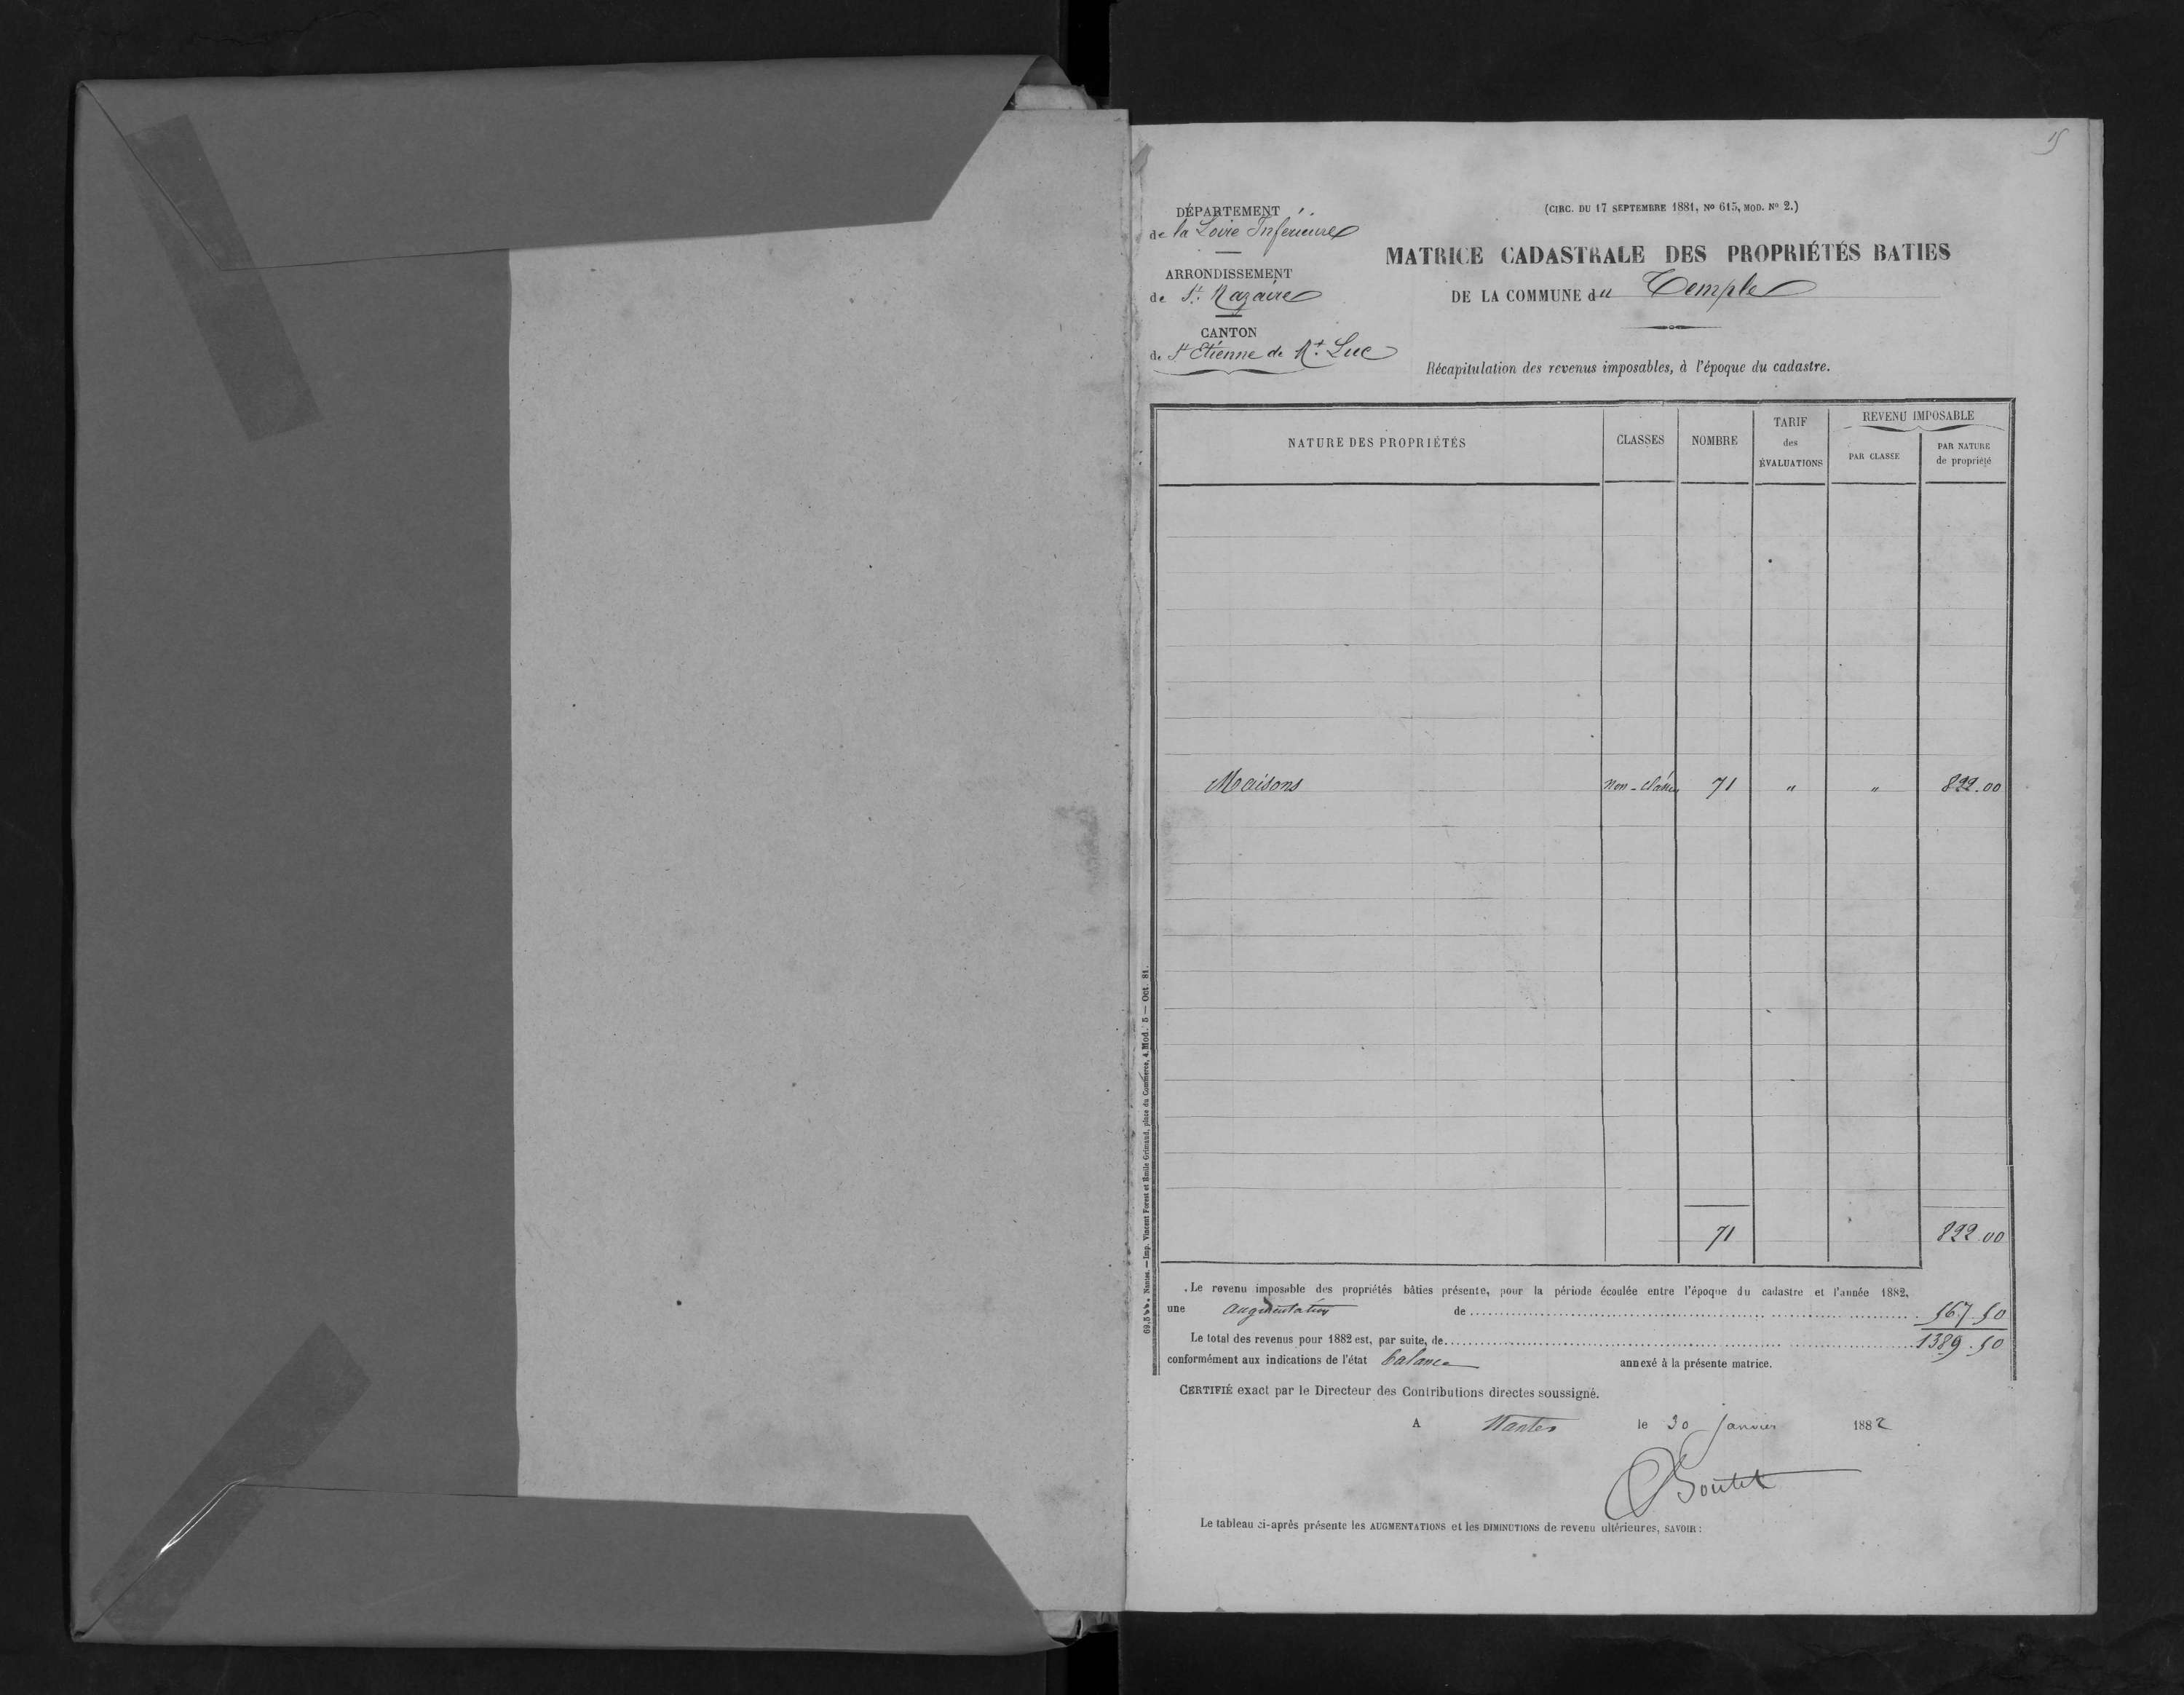 DÉPARTEMENT
de la Loire Inférieure
ARRONDISSEMENT
de St. Nazaire
CANTON
de St Etienne de Mt. Luc
(CIRC. DU 17 SEPTEMBRE 1881, No 615, MOD. No 2.)
MATRICE CADASTRALE DES PROPRIÉTÉS BATIES
DE LA COMMUNE du Temple
Récapitulation des revenus imposables, à l'époque du cadastre.
NATURE DES PROPRIÉTÉS CLASSES NOMBRE TARIF des ÉVALUATIONS REVENU IMPOSABLE
PAR CLASSE PAR NATURE de propriété
Maisons Non-classées 71 " " 822.00
71 822.00
Le revenu imposable des propriétés bâties présente, pour la période écoulée entre l'époque du cadastre et l'année 1882,
une augmentation de 567.50
Le total des revenus pour 1882 est, par suite, de 1389.50
conformément aux indications de l'état balance annexé à la présente matrice.
CERTIFIÉ exact par le Directeur des Contributions directes soussigné.
A Nantes le 30 Janvier 1882
Boutet
Le tableau ci-après présente les AUGMENTATIONS et les DIMINUTIONS de revenu ultérieures, SAVOIR:
Nantes. — Imp. Vincent Forest et Emile Grimaud, place du Commerce, 4. Mod. 5 — Oct. 81.